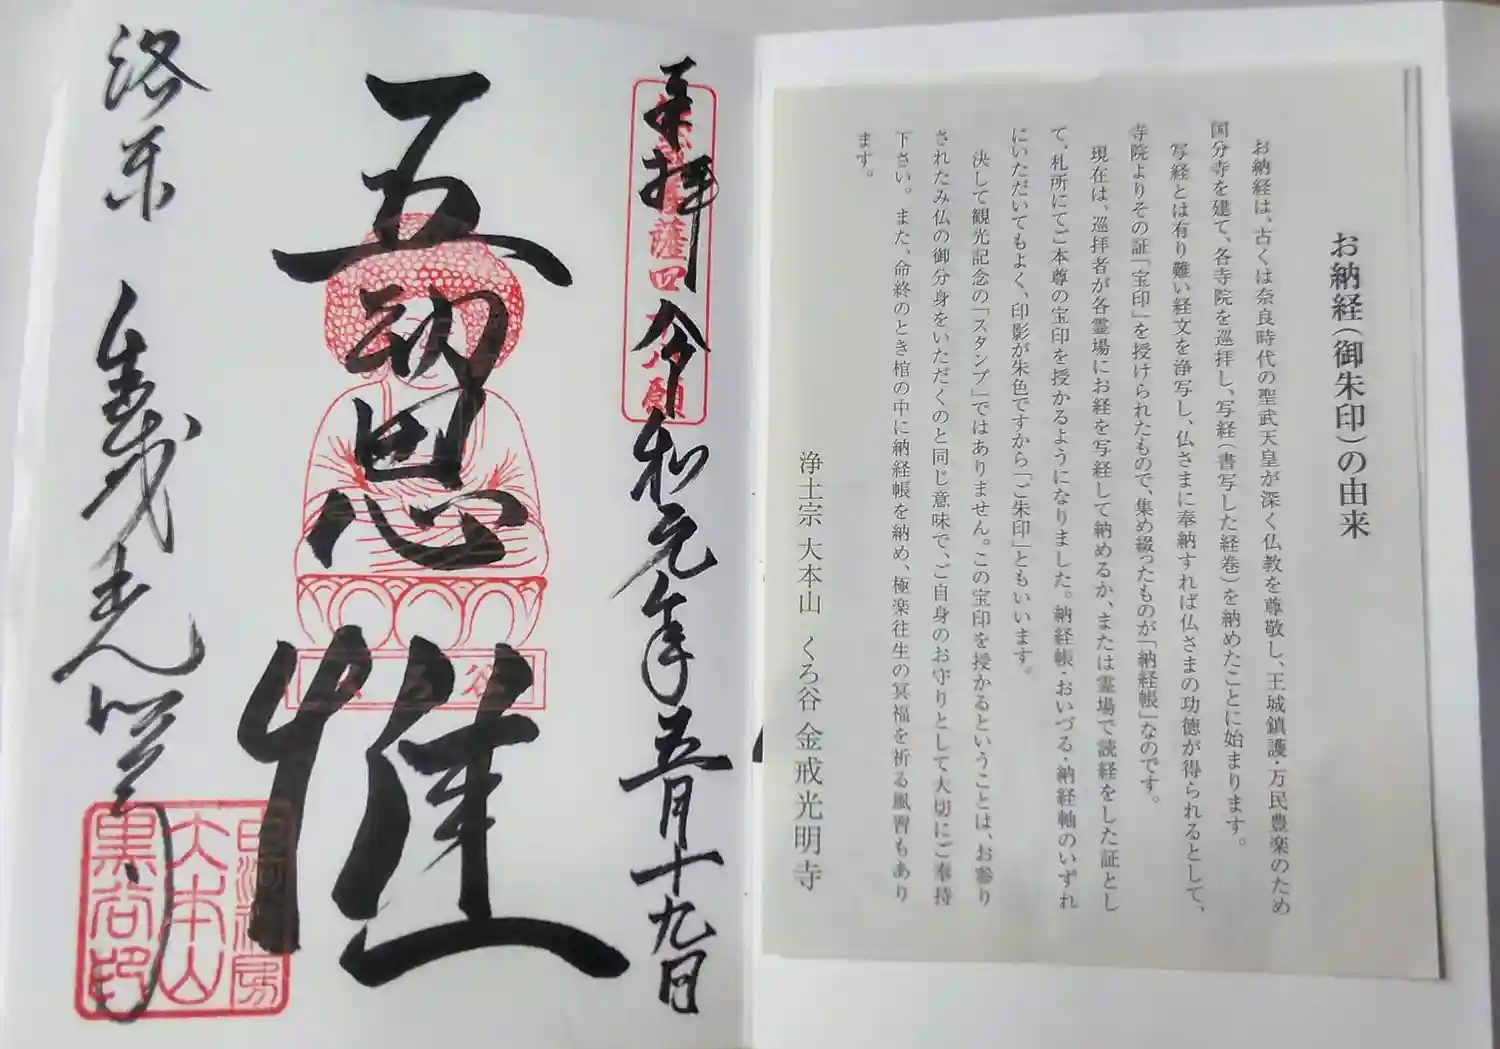 お納経(御朱印)の由来
お納経は、古くは奈良時代の聖武天皇が深く仏教を尊敬し、王城鎮護・万民豊楽のため
国分寺を建て、各寺院を巡拝し、写経(書写した経巻)を納めたことに始まります。
写経とは有り難い経文を浄写し、仏さまに奉納すれば仏さまの功徳が得られるとして、
寺院よりその証「宝印」を授けられたもので、集め綴ったものが「納経帳」なのです。
現在は、巡拝者が各霊場にお経を写経して納めるか、または霊場で読経をした証とし
て、札所にてご本尊の宝印を授かるようになりました。納経帳・おいづる・納経軸のいずれ
にいただいてもよく、印影が朱色ですから「ご朱印」ともいいます。
決して観光記念の「スタンプ」ではありません。この宝印を授かるということは、お参り
されたみ仏の御分身をいただくのと同じ意味で、ご自身のお守りとして大切にご奉持
下さい。また、命終のとき棺の中に納経帳を納め、極楽往生の冥福を祈る風習もあり
ます。
浄土宗 大本山 くろ谷 金戒光明寺
奉拝 令和元年五月十九日
五劫思惟
洛東
大本山